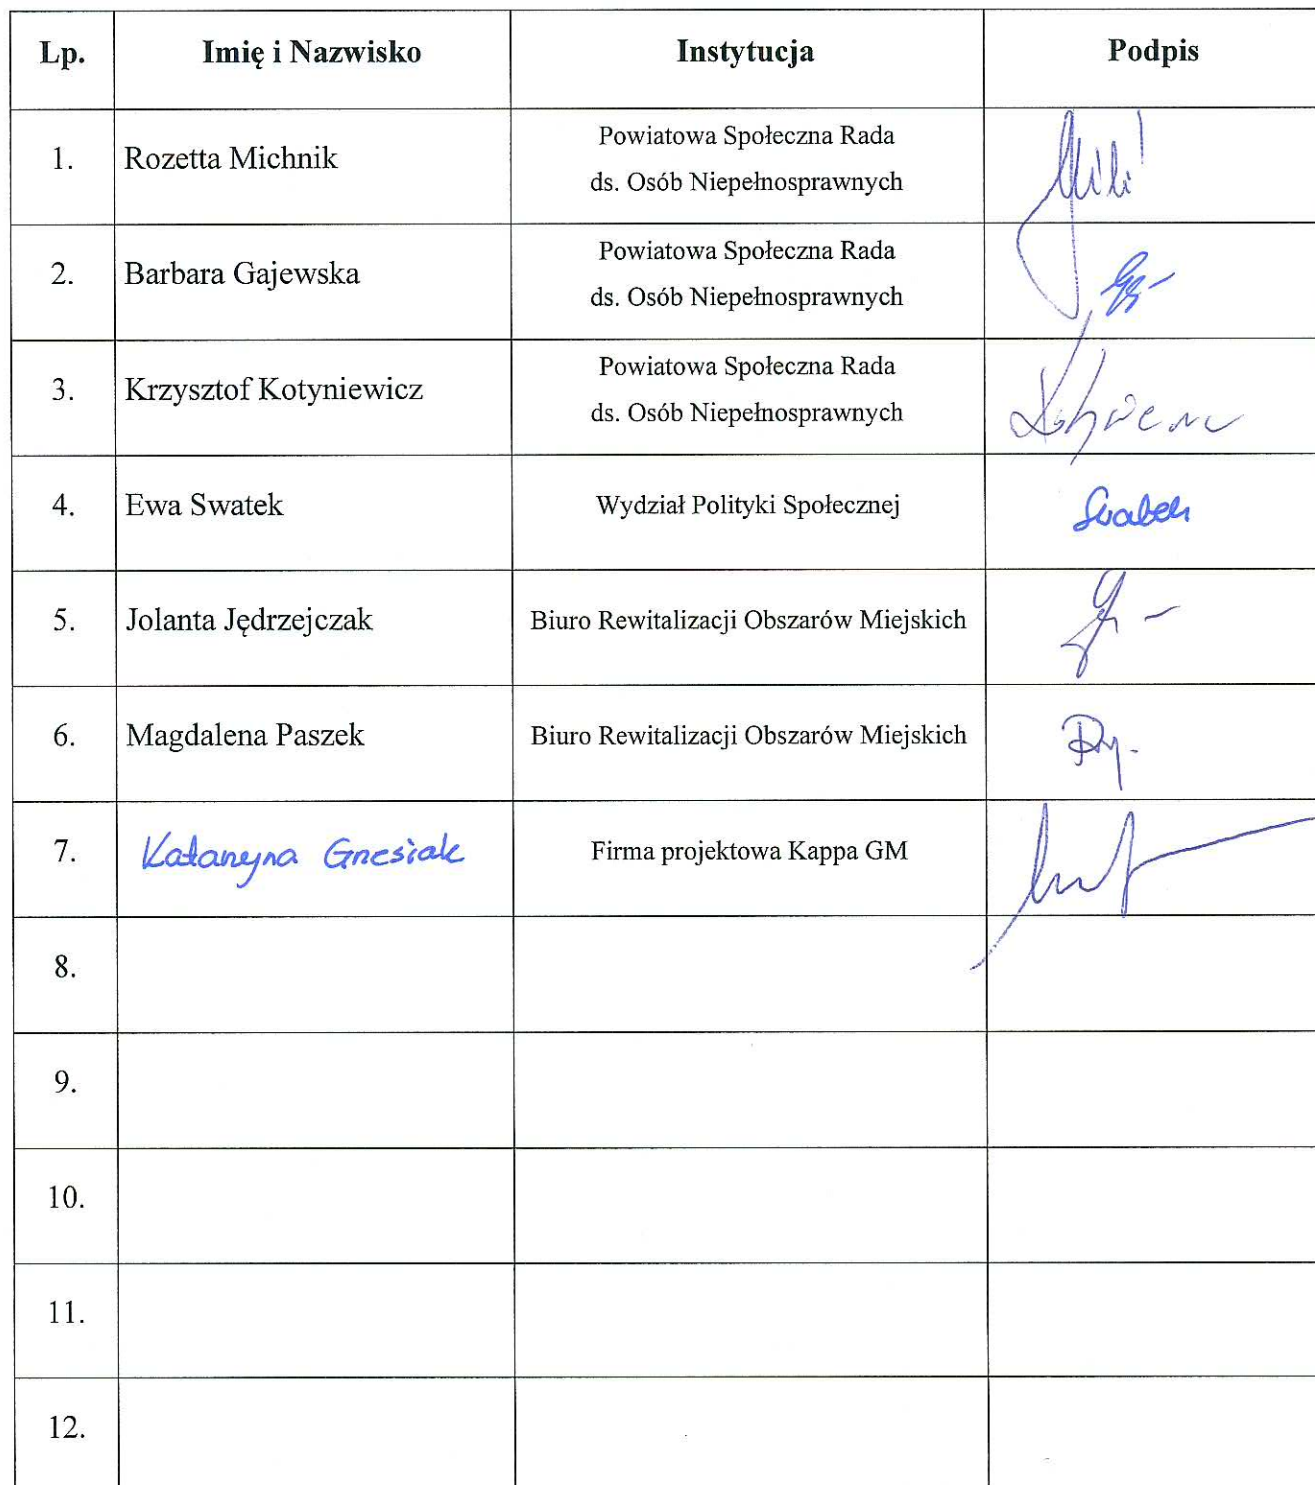 Lp. Imię i Nazwisko Instytucja Podpis
1. Rozetta Michnik Powiatowa Społeczna Rada
ds. Osób Niepełnosprawnych
2. Barbara Gajewska Powiatowa Społeczna Rada
ds. Osób Niepełnosprawnych
3. Krzysztof Kotyniewicz Powiatowa Społeczna Rada
ds. Osób Niepełnosprawnych
4. Ewa Swatek Wydział Polityki Społecznej Swatek
5. Jolanta Jędrzejczak Biuro Rewitalizacji Obszarów Miejskich
6. Magdalena Paszek Biuro Rewitalizacji Obszarów Miejskich
7. Katarzyna Grzesiak Firma projektowa Kappa GM
8.
9.
10.
11.
12.